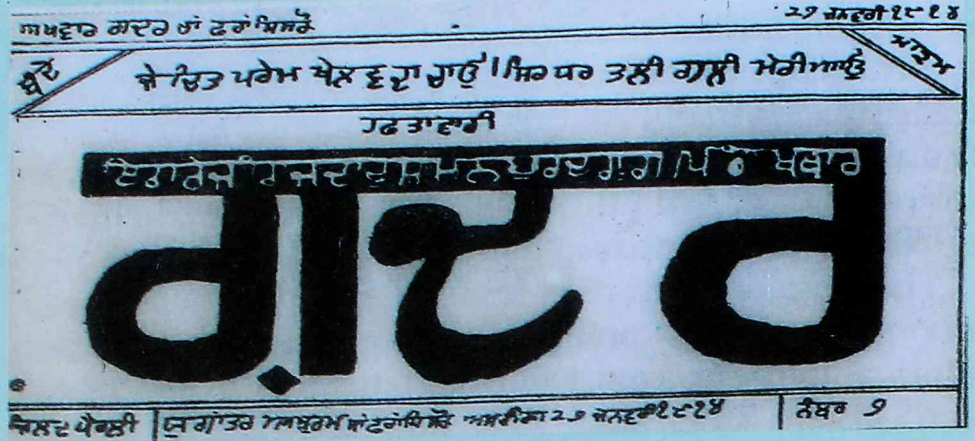 ਅਖਵਾਰ ਗਦਰ ਸਾਂ ਫਰਾਂਸਿਸਕੋ ੨੭ ਜਨਵਰੀ ੧੯੧੪
ਬੰਦੇ ਜੇ ਚਿਤ ਪਰੇਮ ਖੇਲਣ ਦਾ ਚਾਉ। ਸਿਰ ਧਰ ਤਲੀ ਗਲੀ ਮੇਰੀ ਆਉ ਮਾਤ੍ਰਮ
ਹਫਤਾਵਾਰੀ
ਅੰਗਰੇਜੀ ਰਾਜ ਦਾ ਦੁਸ਼ਮਨ ਖਬਾਰ
ਗ਼ਦਰ
ਜਿਲਦ ਪੈਹਲੀ ਯੁਗਾਂਤਰ ਆਸ਼ਰਮ ਸਾਂਫਰਾਂਸਿਸਕੋ ਅਮਰੀਕਾ ੨੭ ਜਨਵਰੀ ੧੯੧੪ ਨੰਬਰ ੭